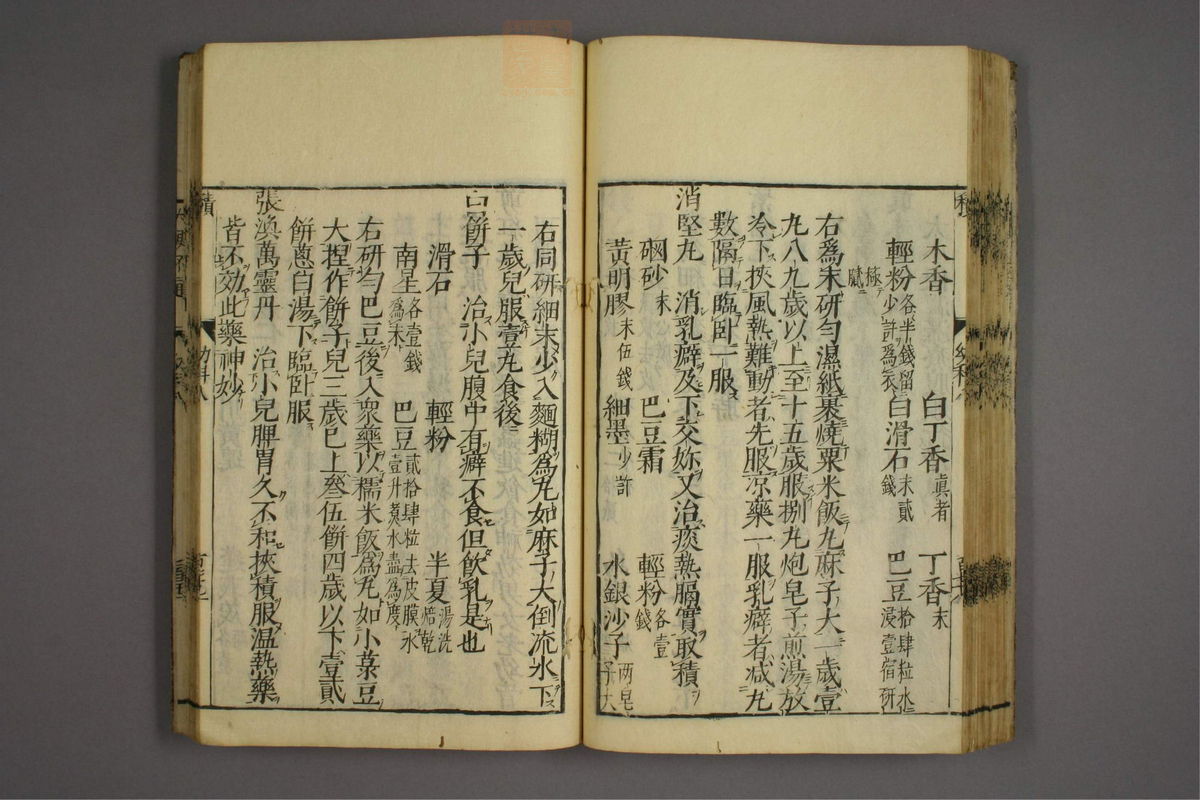 木香　白丁香真者　丁香末
輕粉各半錢留少許為衣　白滑石末貳錢　巴豆拾肆粒水浸壹宿研極膩
右爲末研勻濕紙裹燒粟米飯九麻子大一歲壹
九八九歲以上至十五歲服捌九炮皂子煎湯放
冷下挾風熱難動者先服凉藥一服乳癖者减九
數隔日臨卧一服
消堅九　消乳癖及下交妳又治痰熱膈實取積
硇砂末　巴豆霜　輕粉各壹錢
黃明膠末伍錢　細墨少許　水銀沙子兩皂子大
右同研細末少入麵糊爲九如麻子大倒流水下
一歲兒服壹九食後
白餅子　治小兒腹中有癖不食但飲乳是也
滑石　輕粉　半夏湯洗焙乾
南星各壹錢為末　巴豆貳拾肆粒去皮膜水壹升煮水盡為度
右研勻巴豆後入衆藥以糯米飯爲九如小菉豆
大捏作餅子兒三歲巳上叄伍餅四歲以下壹貳
餅蔥白湯下臨卧服
張渙萬靈丹　治小兒脾胃久不和挾積服温熱藥
皆不效此藥神妙
積
幼科八